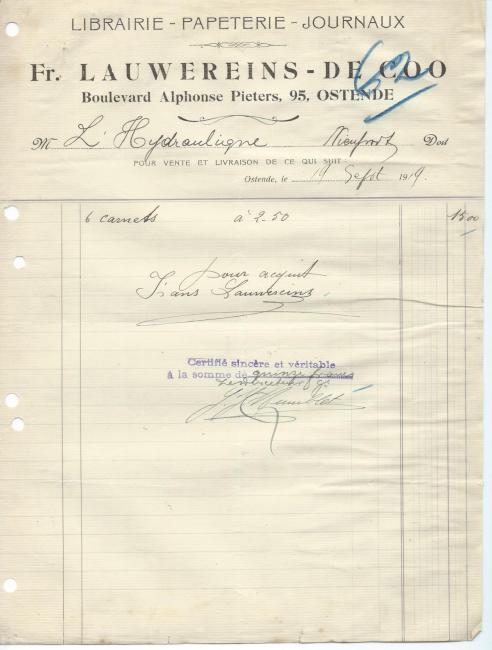 LIBRAIRIE - PAPETERIE - JOURNAUX
Fr. LAUWEREINS - DE COO
Boulevard Alphonse Pieters, 95, OSTENDE
M L'Hydraulique Nieuport Doit
POUR VENTE ET LIVRAISON DE CE QUI SUIT:
Ostende, le 19 Sept 1919.
6 carnets à 2-50 15,00
pour acquit
Frans Lauwereins
Certifié sincère et véritable
à la somme de quinze francs